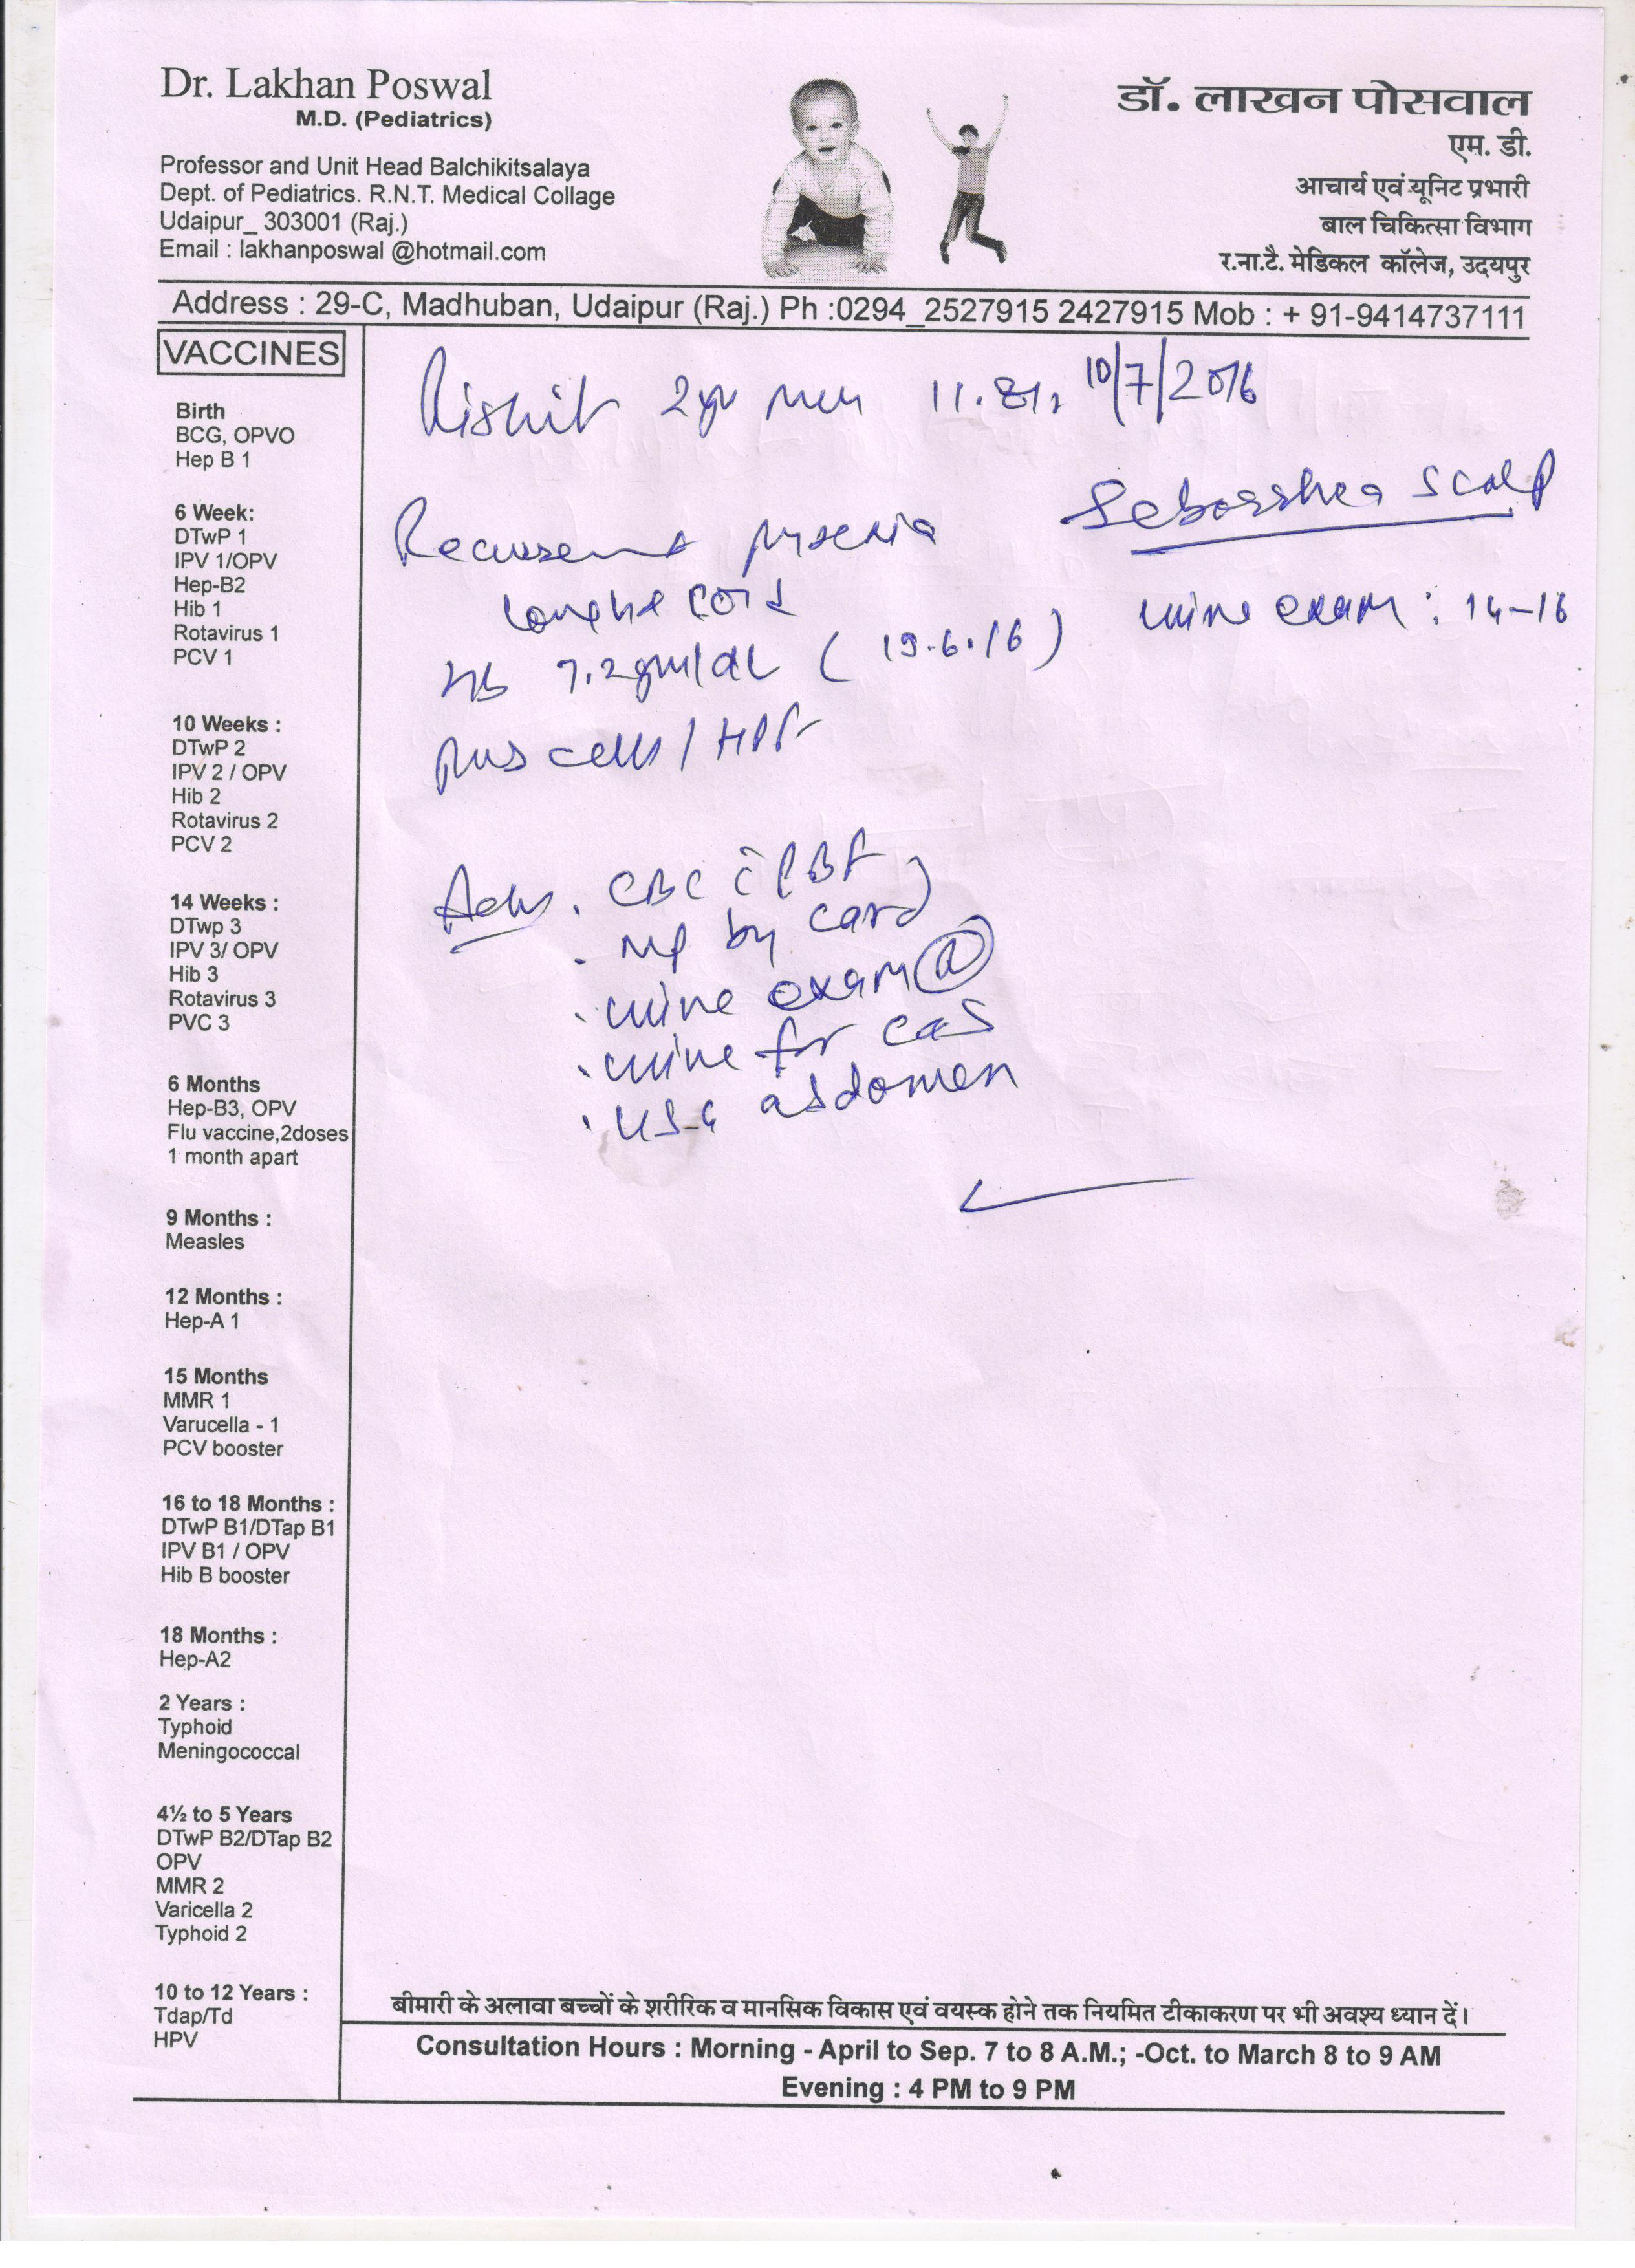 Dr. Lakhan Poswal
M.D. (Pediatrics)
Professor and Unit Head Balchikitsalaya
Dept. of Pediatrics. R.N.T. Medical Collage
Udaipur_ 303001 (Raj.)
Email : lakhanposwal @hotmail.com
डॉ. लाखन पोसवाल
एम. डी.
आचार्य एवं यूनिट प्रभारी
बाल चिकित्सा विभाग
र.ना.टै. मेडिकल कॉलेज, उदयपुर
Address : 29-C, Madhuban, Udaipur (Raj.) Ph :0294_2527915 2427915 Mob : + 91-9414737111
VACCINES
Birth
BCG, OPVO
Hep B 1
6 Week:
DTwP 1
IPV 1/OPV
Hep-B2
Hib 1
Rotavirus 1
PCV 1
10 Weeks :
DTwP 2
IPV 2 / OPV
Hib 2
Rotavirus 2
PCV 2
14 Weeks :
DTwp 3
IPV 3/ OPV
Hib 3
Rotavirus 3
PVC 3
6 Months
Hep-B3, OPV
Flu vaccine,2doses
1 month apart
9 Months :
Measles
12 Months :
Hep-A 1
15 Months
MMR 1
Varucella - 1
PCV booster
16 to 18 Months :
DTwP B1/DTap B1
IPV B1 / OPV
Hib B booster
18 Months :
Hep-A2
2 Years :
Typhoid
Meningococcal
4½ to 5 Years
DTwP B2/DTap B2
OPV
MMR 2
Varicella 2
Typhoid 2
10 to 12 Years :
Tdap/Td
HPV
Rishit 2yr 10/7/2016
Seborrhea scalp
Recurrent pyrexia
cold
urine exam : 14-16
Hb 7.2gm/dl (19.6.16)
pus cells / HPF
Adv. CBC c̄ PBF
. MP by card
. urine exam
. urine for C&S
. USG abdomen
बीमारी के अलावा बच्चों के शरीरिक व मानसिक विकास एवं वयस्क होने तक नियमित टीकाकरण पर भी अवश्य ध्यान दें।
Consultation Hours : Morning - April to Sep. 7 to 8 A.M.; -Oct. to March 8 to 9 AM
Evening : 4 PM to 9 PM